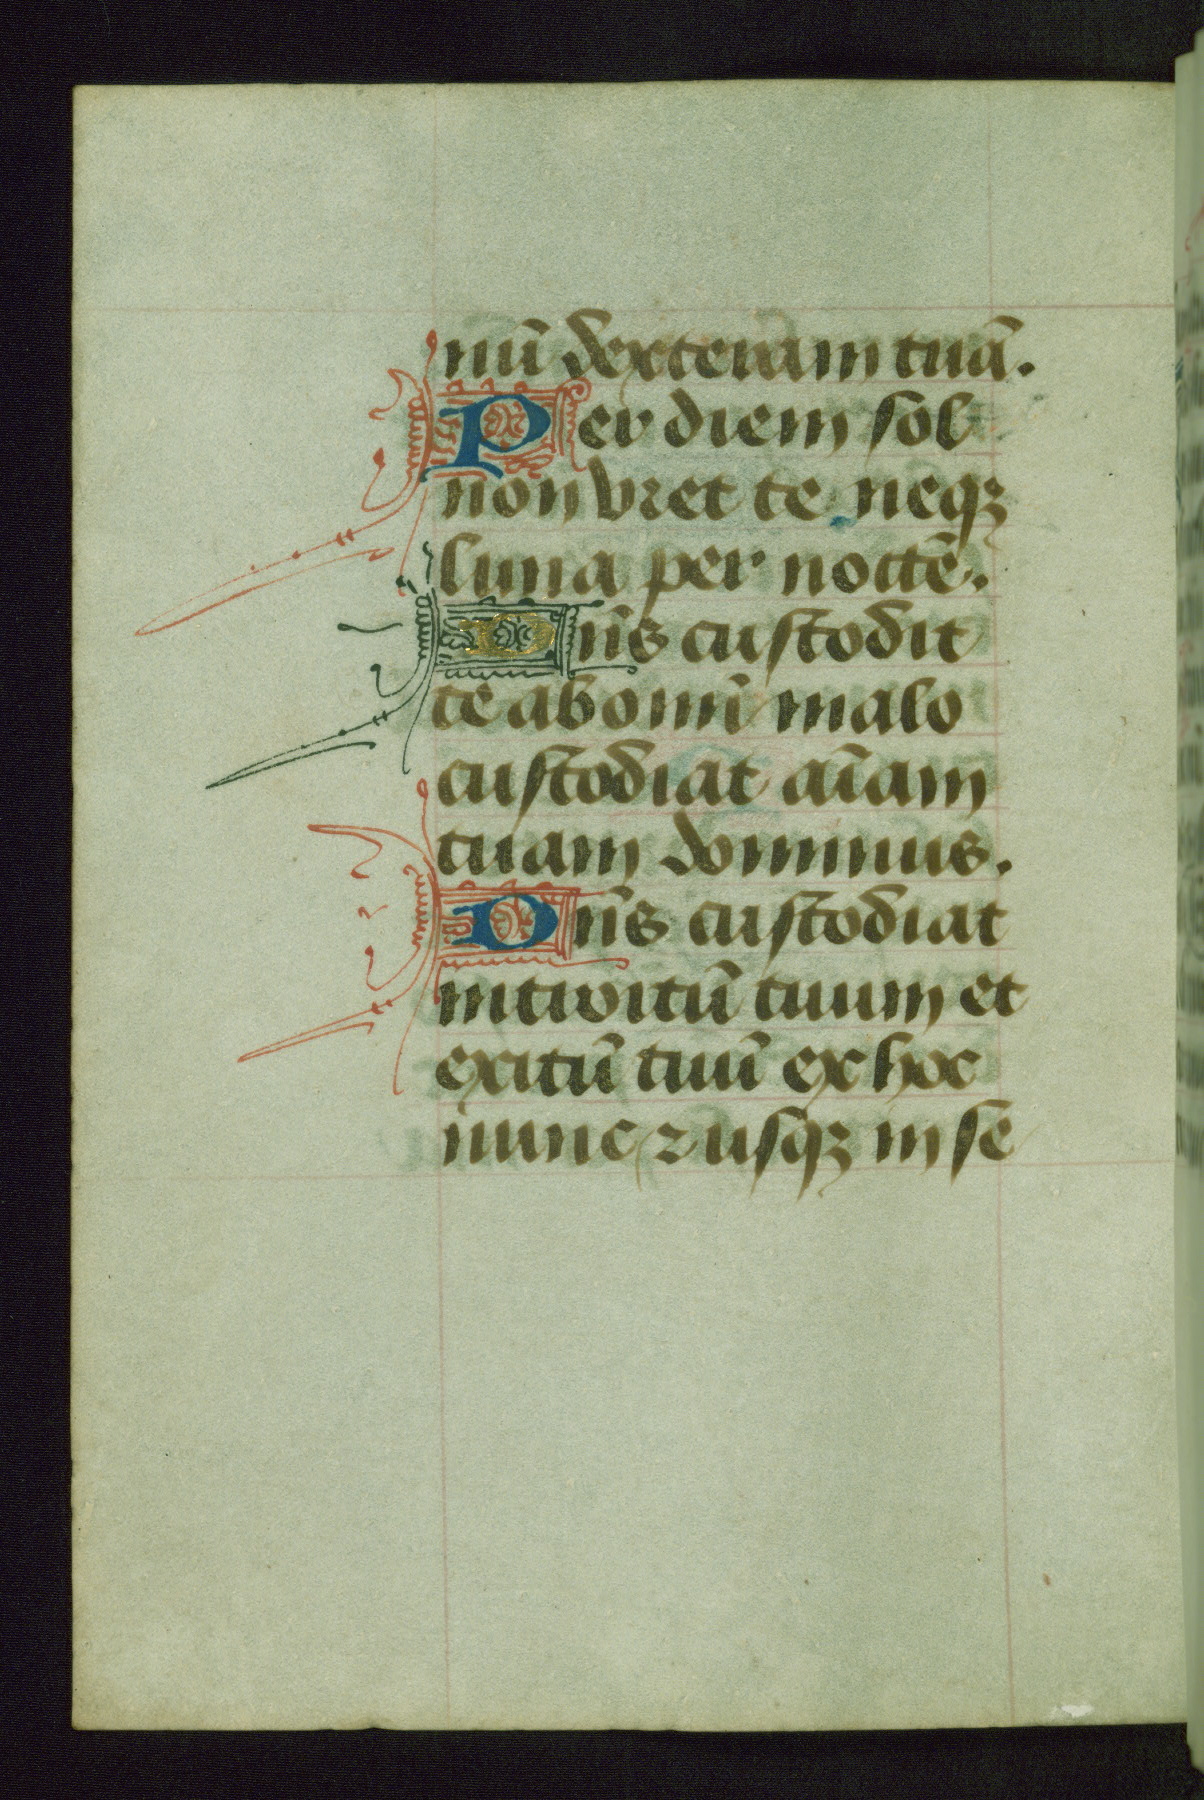 nū dexteram tuā.
Per diem sol
non vret te neqꝫ
luna per noctē.
Dn̄s custodit
te ab omī malo
custodiat aīam
tuam dominus.
Dn̄s custodiat
introitū tuum et
exitū tuū ex hoc
nunc ⁊ usqꝫ in se